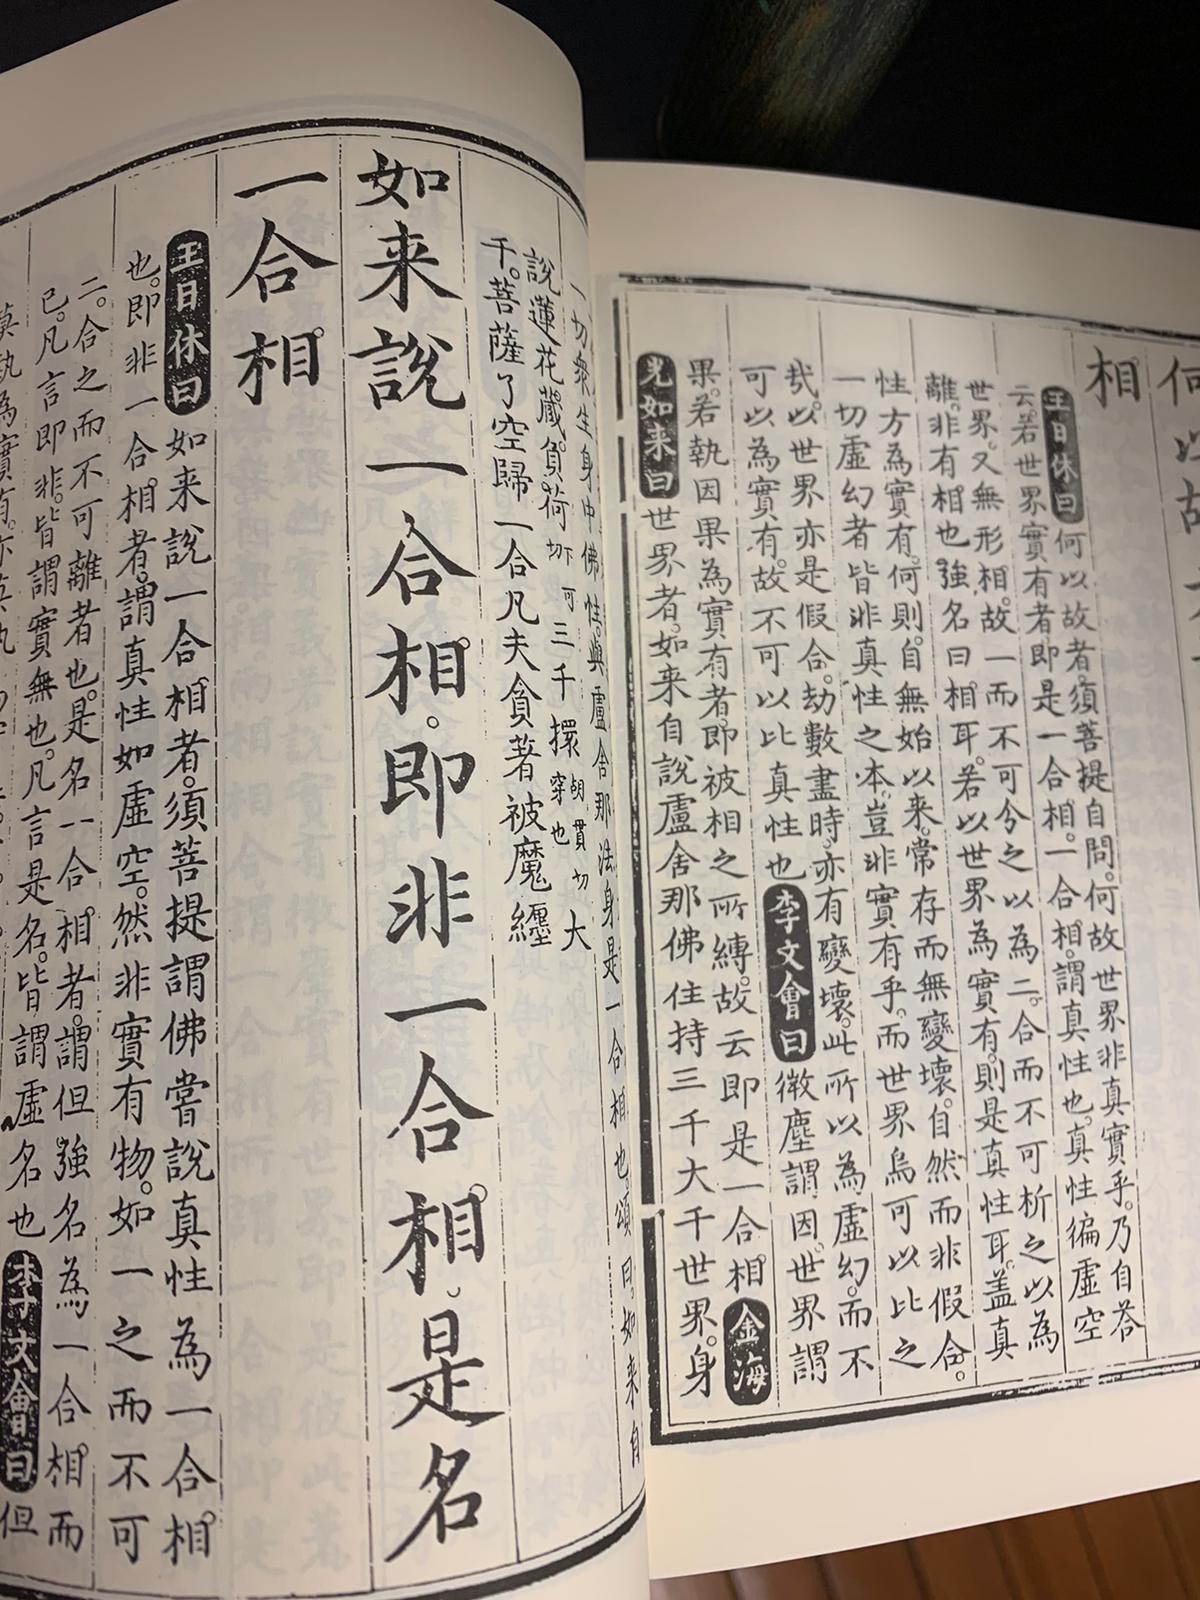 何以故
相
王日休曰何以故者。須菩提自問。何故世界非真實乎。乃自荅
云。若世界實有者即是一合相。一合相。謂真性也。真性徧虛空
世界。又無形相。故一而不可分之以為二。合而不可析之以為
離。非有相也強名曰相耳。若以世界為實有。則是真性耳。蓋真
性方為實有。何則。自無始以来。常存而無變壞。自然而非假合。
一切虛幻者皆非真性之本。豈非實有乎。而世界烏可以比之
哉。以世界亦是假合。劫數盡時。亦有變壞。此所以為虛幻。而不
可以為實有。故不可以比真性也李文會曰微塵謂因。世界謂
果。若執因果為實有者。即被相之所縛。故云即是一合相金海
光如来曰世界者。如来自說盧舍那佛住持三千大千世界。身
一切衆生身中佛性。與盧舍那法身是一合相也頌曰。如来自
說蓮花藏。負荷下可切三千擐胡貫切穿也大
千。菩薩了空歸一合凡夫貪著被魔纒
如来說一合相。即非一合相。是名
一合相
王日休曰如来說一合相者。須菩提謂佛嘗說真性為一合相
也。即非一合相者。謂真性如虛空。然非實有物。如一之而不可
二。合之而不可離者也。是名一合相者。謂但強名為一合相而
已。凡言即非。皆謂實無也。凡言是名。皆謂虛名也李文會曰但
莫執為實有。亦莫執